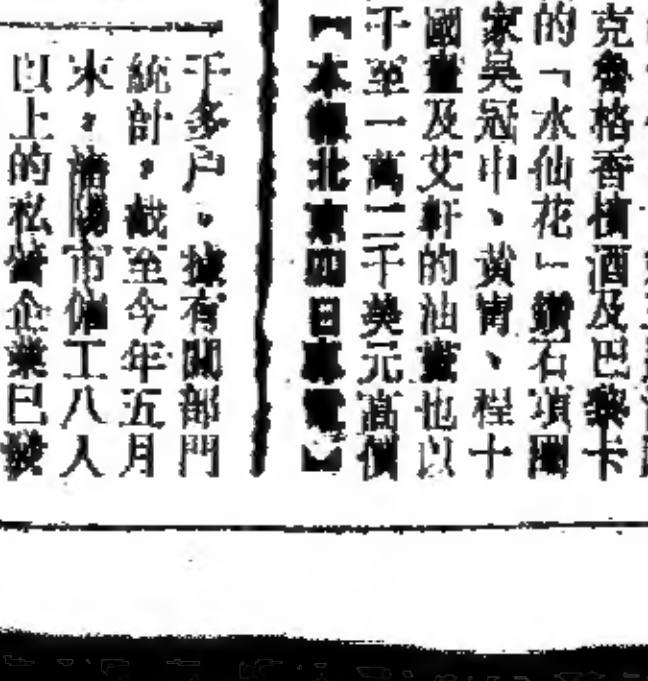 克魯格香檳酒及巴黎卡
的「水仙花」鑽石項圈
家吳冠中、黃胄、程十
國畫及艾軒的油畫也以
千至一萬二千美元高價
【本報北京四日專電】
千多户。據有關部門
統計，截至今年五月
末，瀋陽市僱工八人
以上的私營企業已發